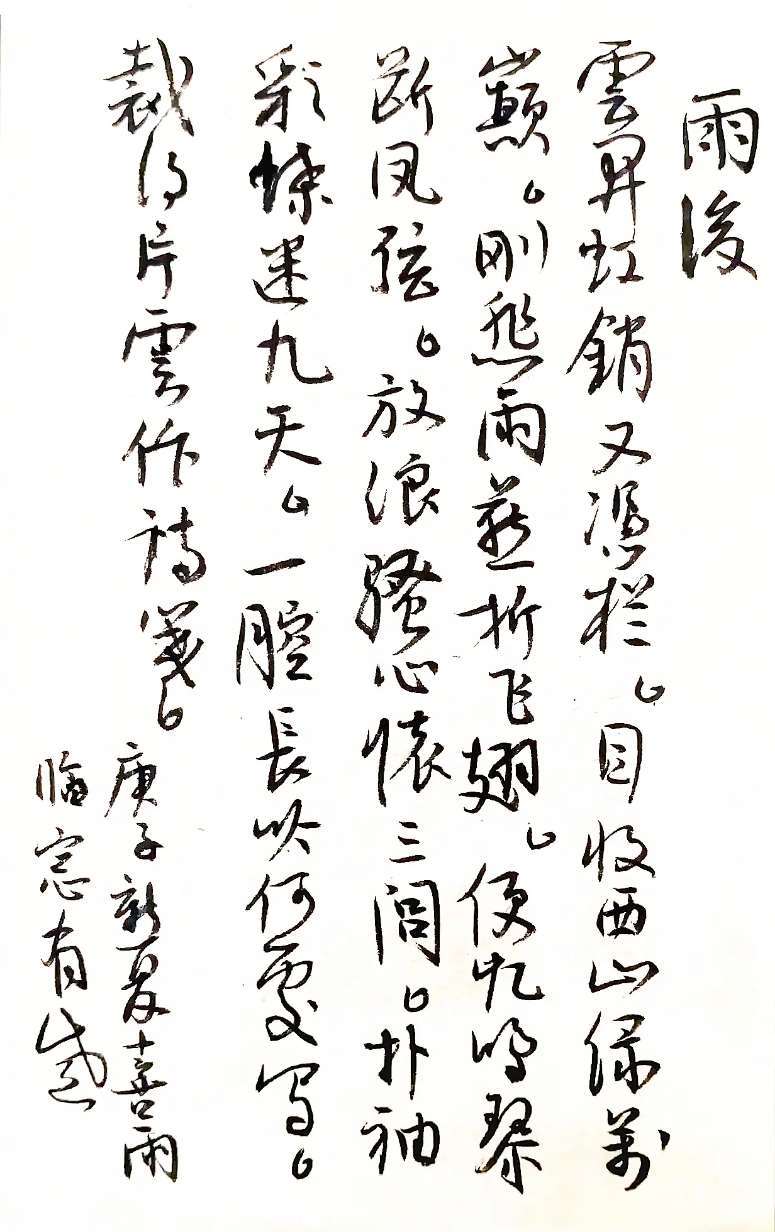 雨後
雲昇虹銷又憑栏。目收西山绿萬
巔。刚愁雨燕折飞翅。便忆鸣琴
断凤弦。放浪骚心懷三闾。扑袖
彩蝶迷九天。一腔長吟何處写。
裁得片雲作詩箋。
庚子新夏喜雨
临窓有感